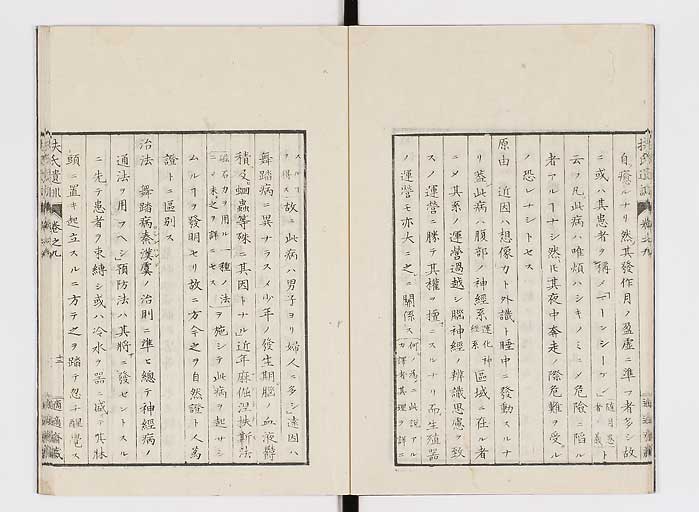 自ラ癒ルナリ然𪜈其發作月ノ盈虚ニ準フ者多シ故
ニ或ハ其患者ヲ稱メ「ーンシーゲ」
云フ凡此病ハ唯煩ハシキノミニメ危険ニ陥ル
者アル「ナシ然𪜈其夜中奔走ノ際危難ヲ受ル
ノ恐レナシトセス
原由 近因ハ想像力ト外識ト睡中ニ發動スルナ
リ蓋此病ハ腹部ノ神經系 區域ニ在ル者
ニメ其系ノ運營過越シ腦神經ノ辨識思慮ヲ致
スノ運營ニ勝テ其權ヲ擅ニスルナリ而生殖器
ノ運營モ亦大ニ之ニ關係ス
故ニ此病ハ男子ヨリ婦人ニ多シ遠因ハ
舞踏病ニ異ナラスメ少年ノ發生期腦ノ血液欝
積及蛔蟲等殊ニ其因トナル近年麻倔涅扶斯法
一種ノ法ヲ施シテ此病ヲ起サシ
ムル「ヲ發明セリ故ニ方今之ヲ自然證ト人為
證トニ區別ス
治法 舞踏病泰漢虞ノ治則ニ準ヒ總テ神經病ノ
通法ヲ用フヘシ預防法ハ其將ニ發セントスル
ニ先テ患者ヲ束縛シ或ハ冷水ヲ器ニ盛テ其牀
頭ニ置キ起立スルニ方テ之ヲ踏テ忽チ醒覺ス
扶氏遺訓 卷之九 十二 適適齋藏